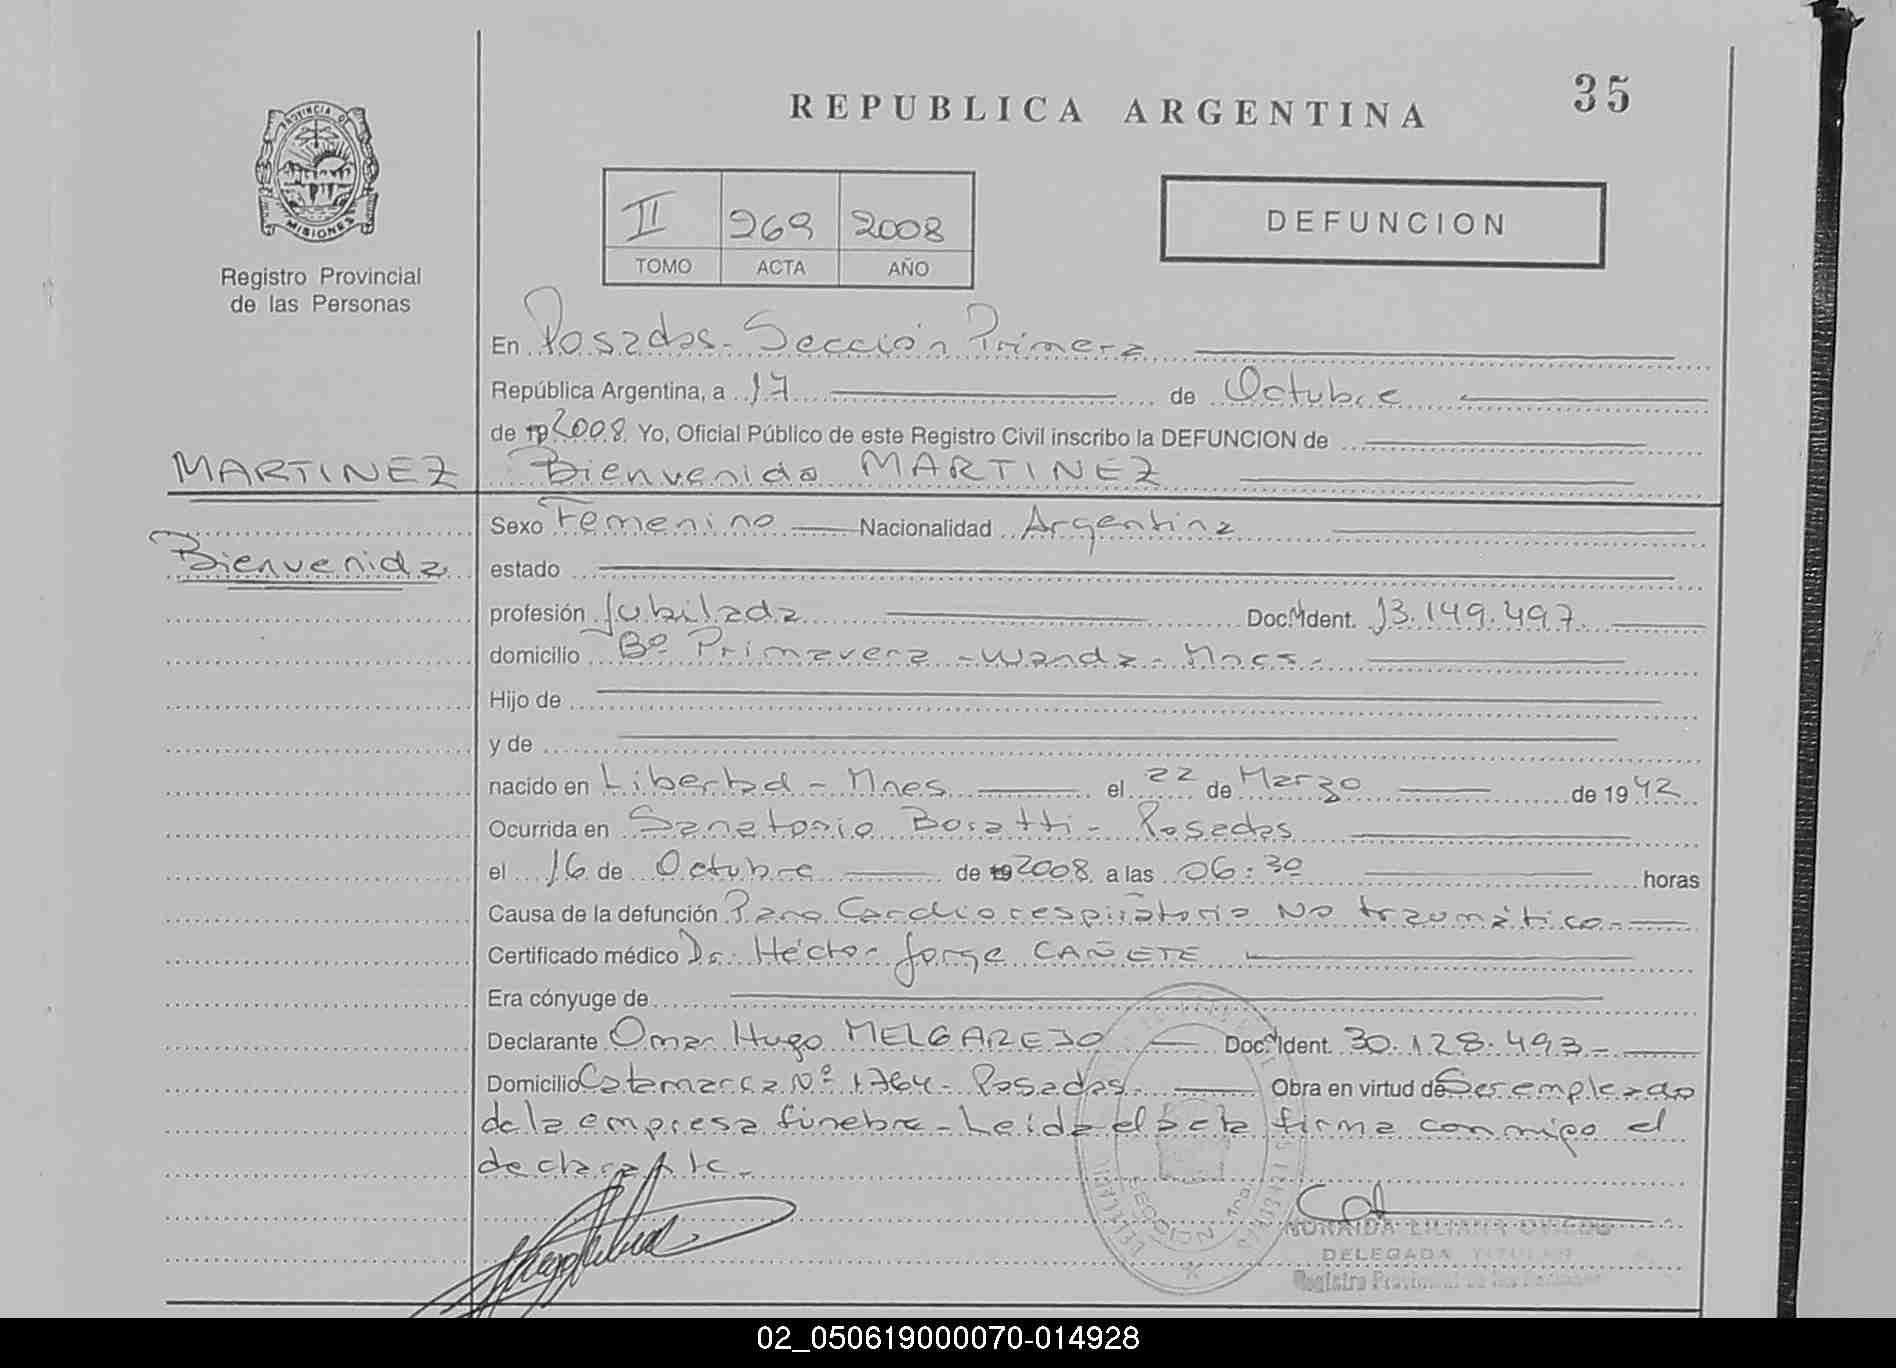 35
REPUBLICA ARGENTINA
PROVINCIA DE
MISIONES
Registro Provincial
de las Personas
II 269 2008
TOMO ACTA AÑO
DEFUNCION
En Posadas - Sección Primera
República Argentina, a 17 de Octubre
de 19 2008 Yo, Oficial Público de este Registro Civil inscribo la DEFUNCION de
MARTINEZ
Bienvenida MARTINEZ
Bienvenida
Sexo Femenino Nacionalidad Argentina
estado
profesión Jubilada Doc. Ident. 13.149.497
domicilio Bº Primavera - Wanda - Mnes -
Hijo de
y de
nacido en Libertad - Mnes el 22 de Marzo de 1942
Ocurrida en Sanatorio Boratti - Posadas
el 16 de Octubre de 19 2008 a las 06:30 horas
Causa de la defunción Paro Cardiorespiratorio No traumático -
Certificado médico Dr. Héctor Jorge CAÑETE
Era cónyuge de
Declarante Omar Hugo MELGAREJO Doc. Ident. 30.128.493 -
Domicilio Catamarca Nº 1764 - Posadas - Obra en virtud de Ser empleado
de la empresa fúnebre - Leida el acta firma conmigo el
declarante -
SECCION 1ra
DELEGADA TITULAR
Registro Provincial de las Personas
02_050619000070-014928